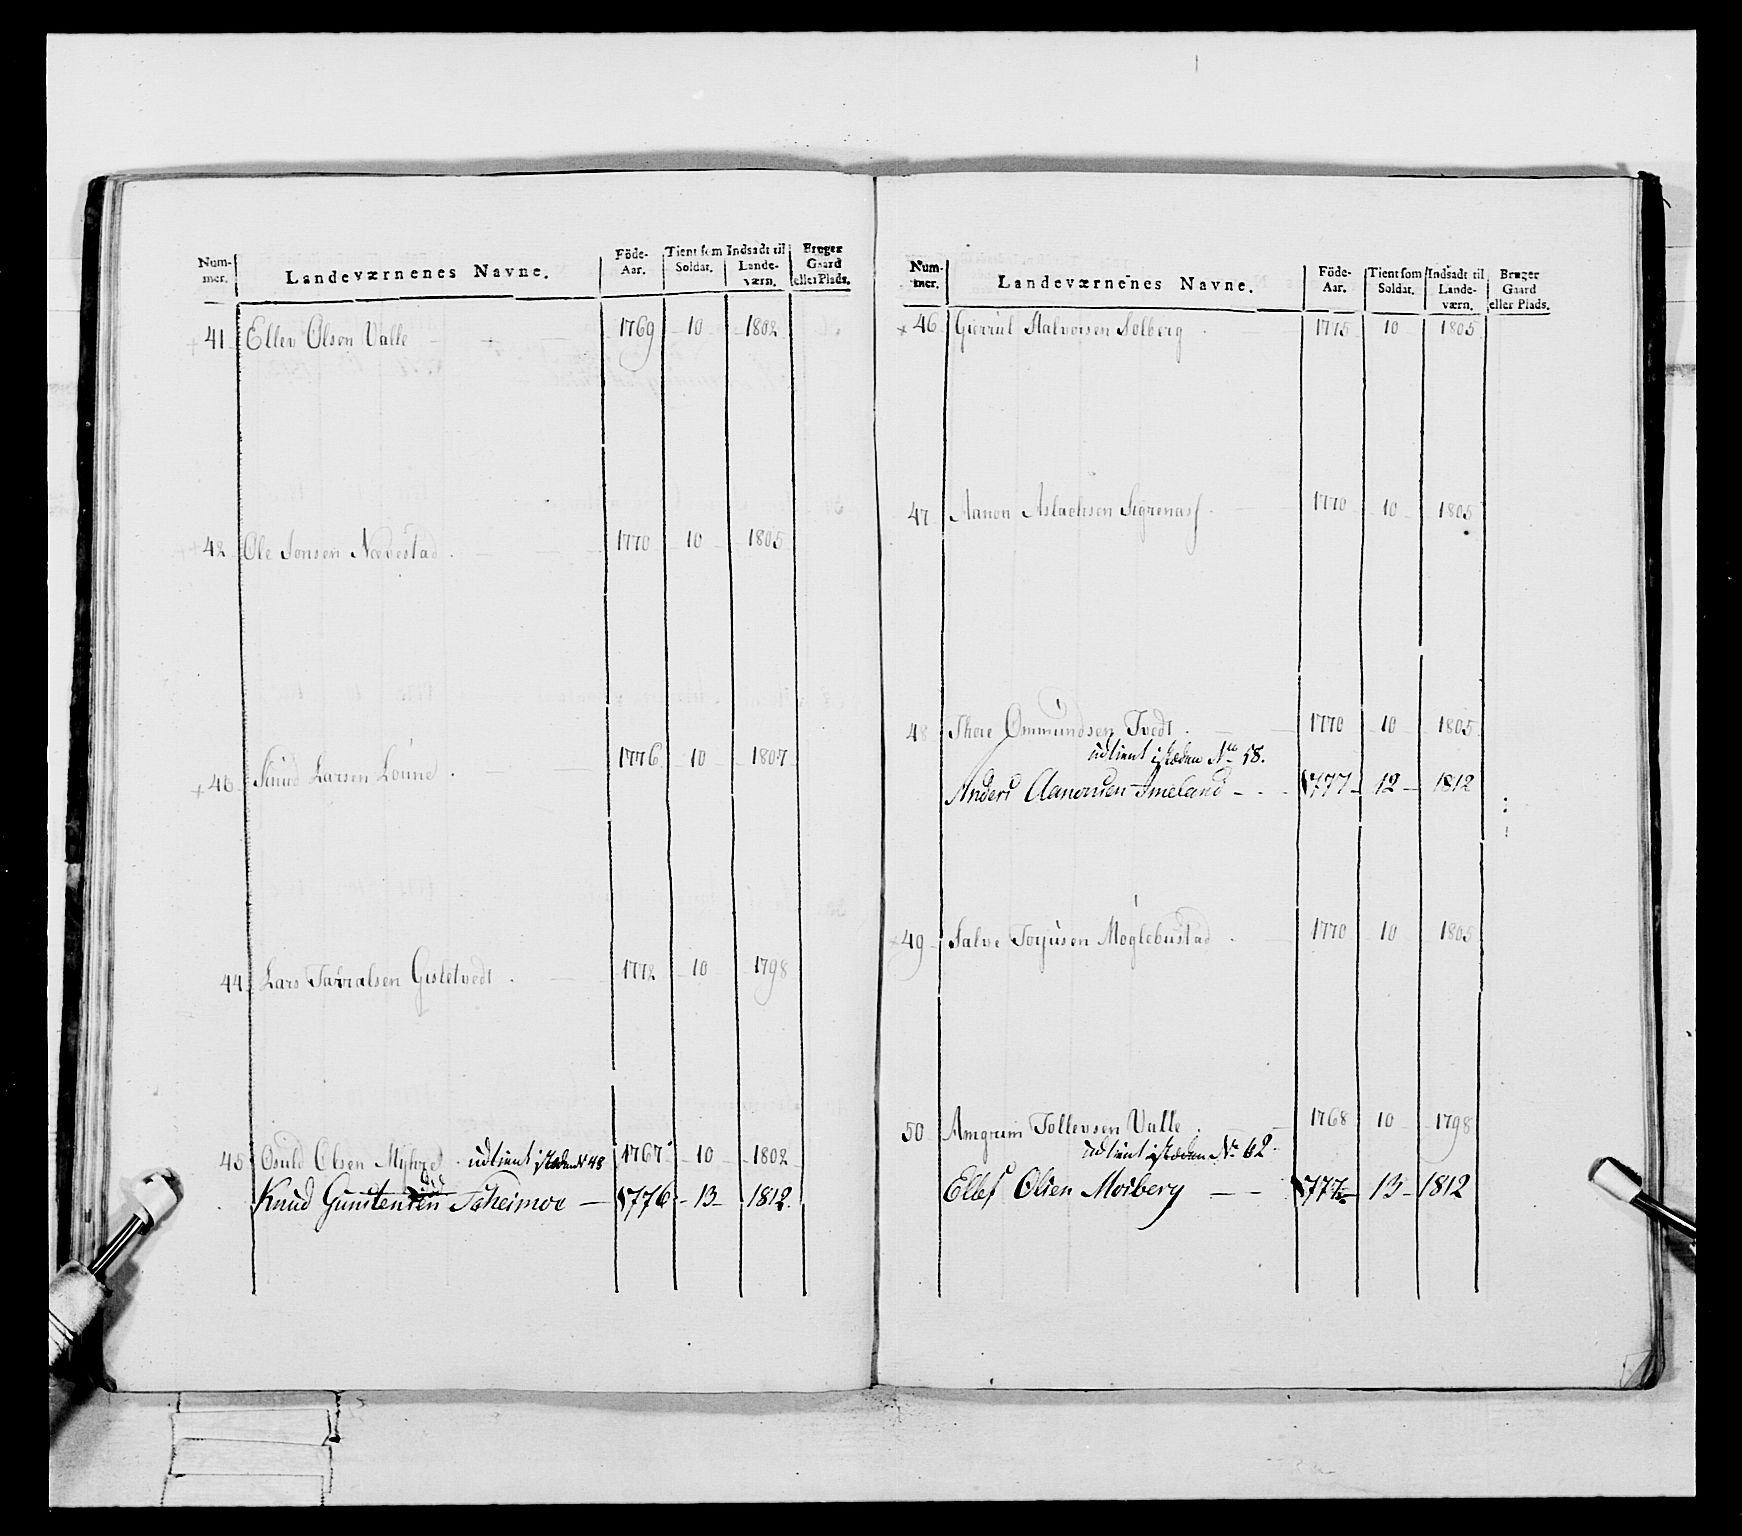 Num-mer. Landeværnenes Navne. Föde-Aar. Tient som Soldat. Indsadt til Lande-værn. Bruger Gaard eller Plads.
41 Ellev Olsen Valle 1769 10 1802
42 Ole Jonsen Nævestad 1770 10 1805
+ 46 Knud Larsen Lonne 1776 10 1807
44 Lars Tarralsen Gisletvedt 1772 10 1798
45 Osuld Olsen Myhre udtient istæden No 48 1767 10 1802
Knud Gunstensen 1776 13 1812
Num-mer. Landeværnenes Navne. Föde-Aar. Tient som Soldat. Indsadt til Lande-værn. Bruger Gaard eller Plads.
+ 46 Gierrul Halvorsen Solberg 1775 10 1805
47 Aanon Aslachsen 1770 10 1805
48 Thore Ommundsen Tvedt 1770 10 1805
udtient istæden No 58.
Anders Aanonsen Imeland 1777 12 1812
+ 49 Salve Torjusen Møglebustad 1770 10 1805
50 Amgrim Tollevsen Valle 1768 10 1798
udtient istæden No 62
Ellef Olsen Mosberg 13 1812